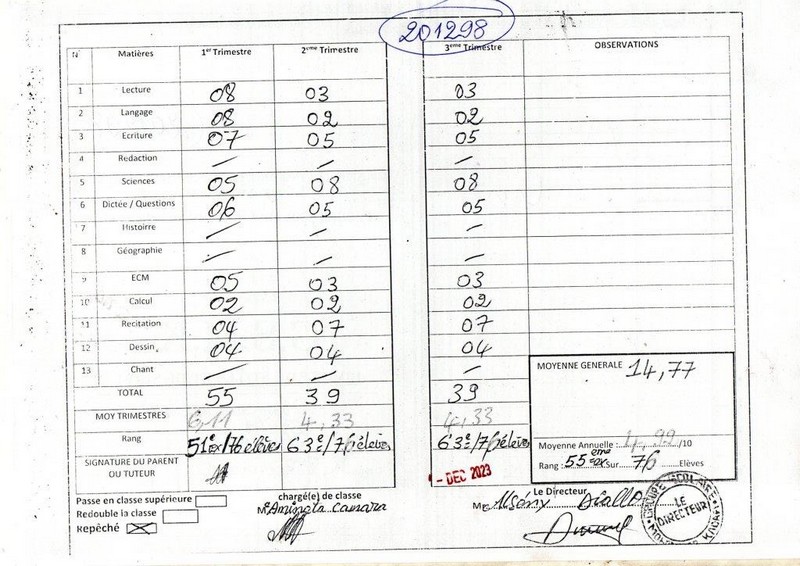 201298
N° Matières 1er Trimestre 2eme Trimestre 3eme Trimestre OBSERVATIONS
1 Lecture 08 03 03
2 Langage 08 02 02
3 Ecriture 07 05 05
4 Rédaction / / /
5 Sciences 05 08 08
6 Dictée / Questions 06 05 05
7 Histoirre / / /
8 Géographie / / /
9 ECM 05 03 03
10 Calcul 02 02 02
11 Recitation 04 07 07
12 Dessin 04 04 04
13 Chant / / /
TOTAL 55 39 39
MOYENNE GENERALE 14,77
MOY TRIMESTRES 6,11 4,33 4,33
Rang 51e ex/76 élèves 63e/76 élèves 63e/76 élèves
Moyenne Annuelle : 4,99 /10
Rang : 55eme ex Sur 76 Elèves
SIGNATURE DU PARENT
OU TUTEUR
- DEC 2023
Passe en classe supérieure
Redouble la classe
Repêché
chargé(e) de classe
Me Aminata Camara
Le Directeur
Diallo
LE
DIRECTEUR